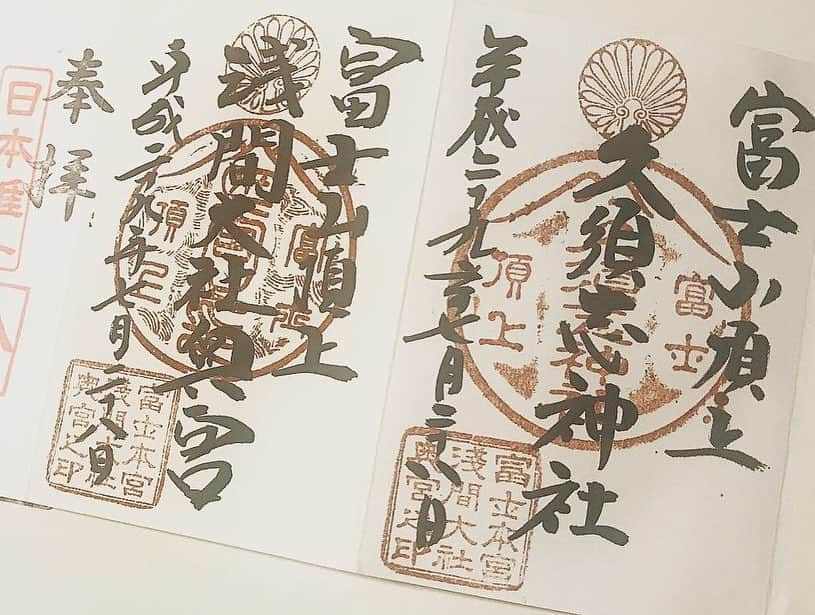 富士山頂上
久須志神社
平成二十九年七月二十八日
富士
頂上
富士本宮
淺間大社
奥宮之印
富士山頂上
浅間大社奥宮
平成二十九年七月二十八日
頂上
富士本宮
淺間大社
奥宮之印
奉拝
日本